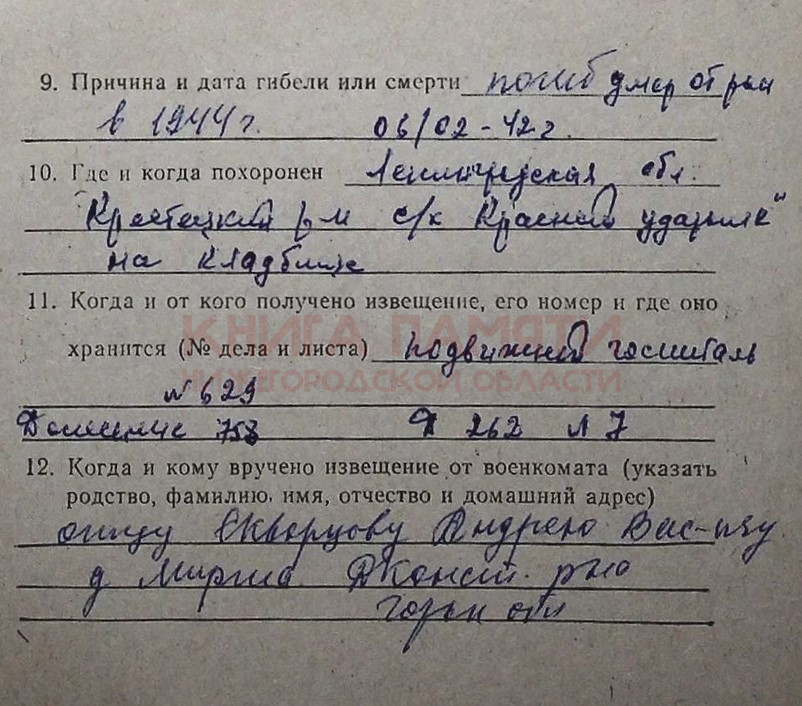 9. Причина и дата гибели или смерти погиб умер от ран
в 1944 г. 06/02-42 г.
10. Где и когда похоронен Ленинградская обл.
Крестецкий р-н с/х Красный ударник"
на кладбище
11. Когда и от кого получено извещение, его номер и где оно
КНИГА ПАМЯТИ
хранится (№ дела и листа) подвижной госпиталь
НИЖЕГОРОДСКОЙ ОБЛАСТИ
№ 629
Донесение Д 262 л 7
12. Когда и кому вручено извещение от военкомата (указать
родство, фамилию, имя, отчество и домашний адрес)
отцу Скворцову Андрею Вас-чу
д
Горьк обл